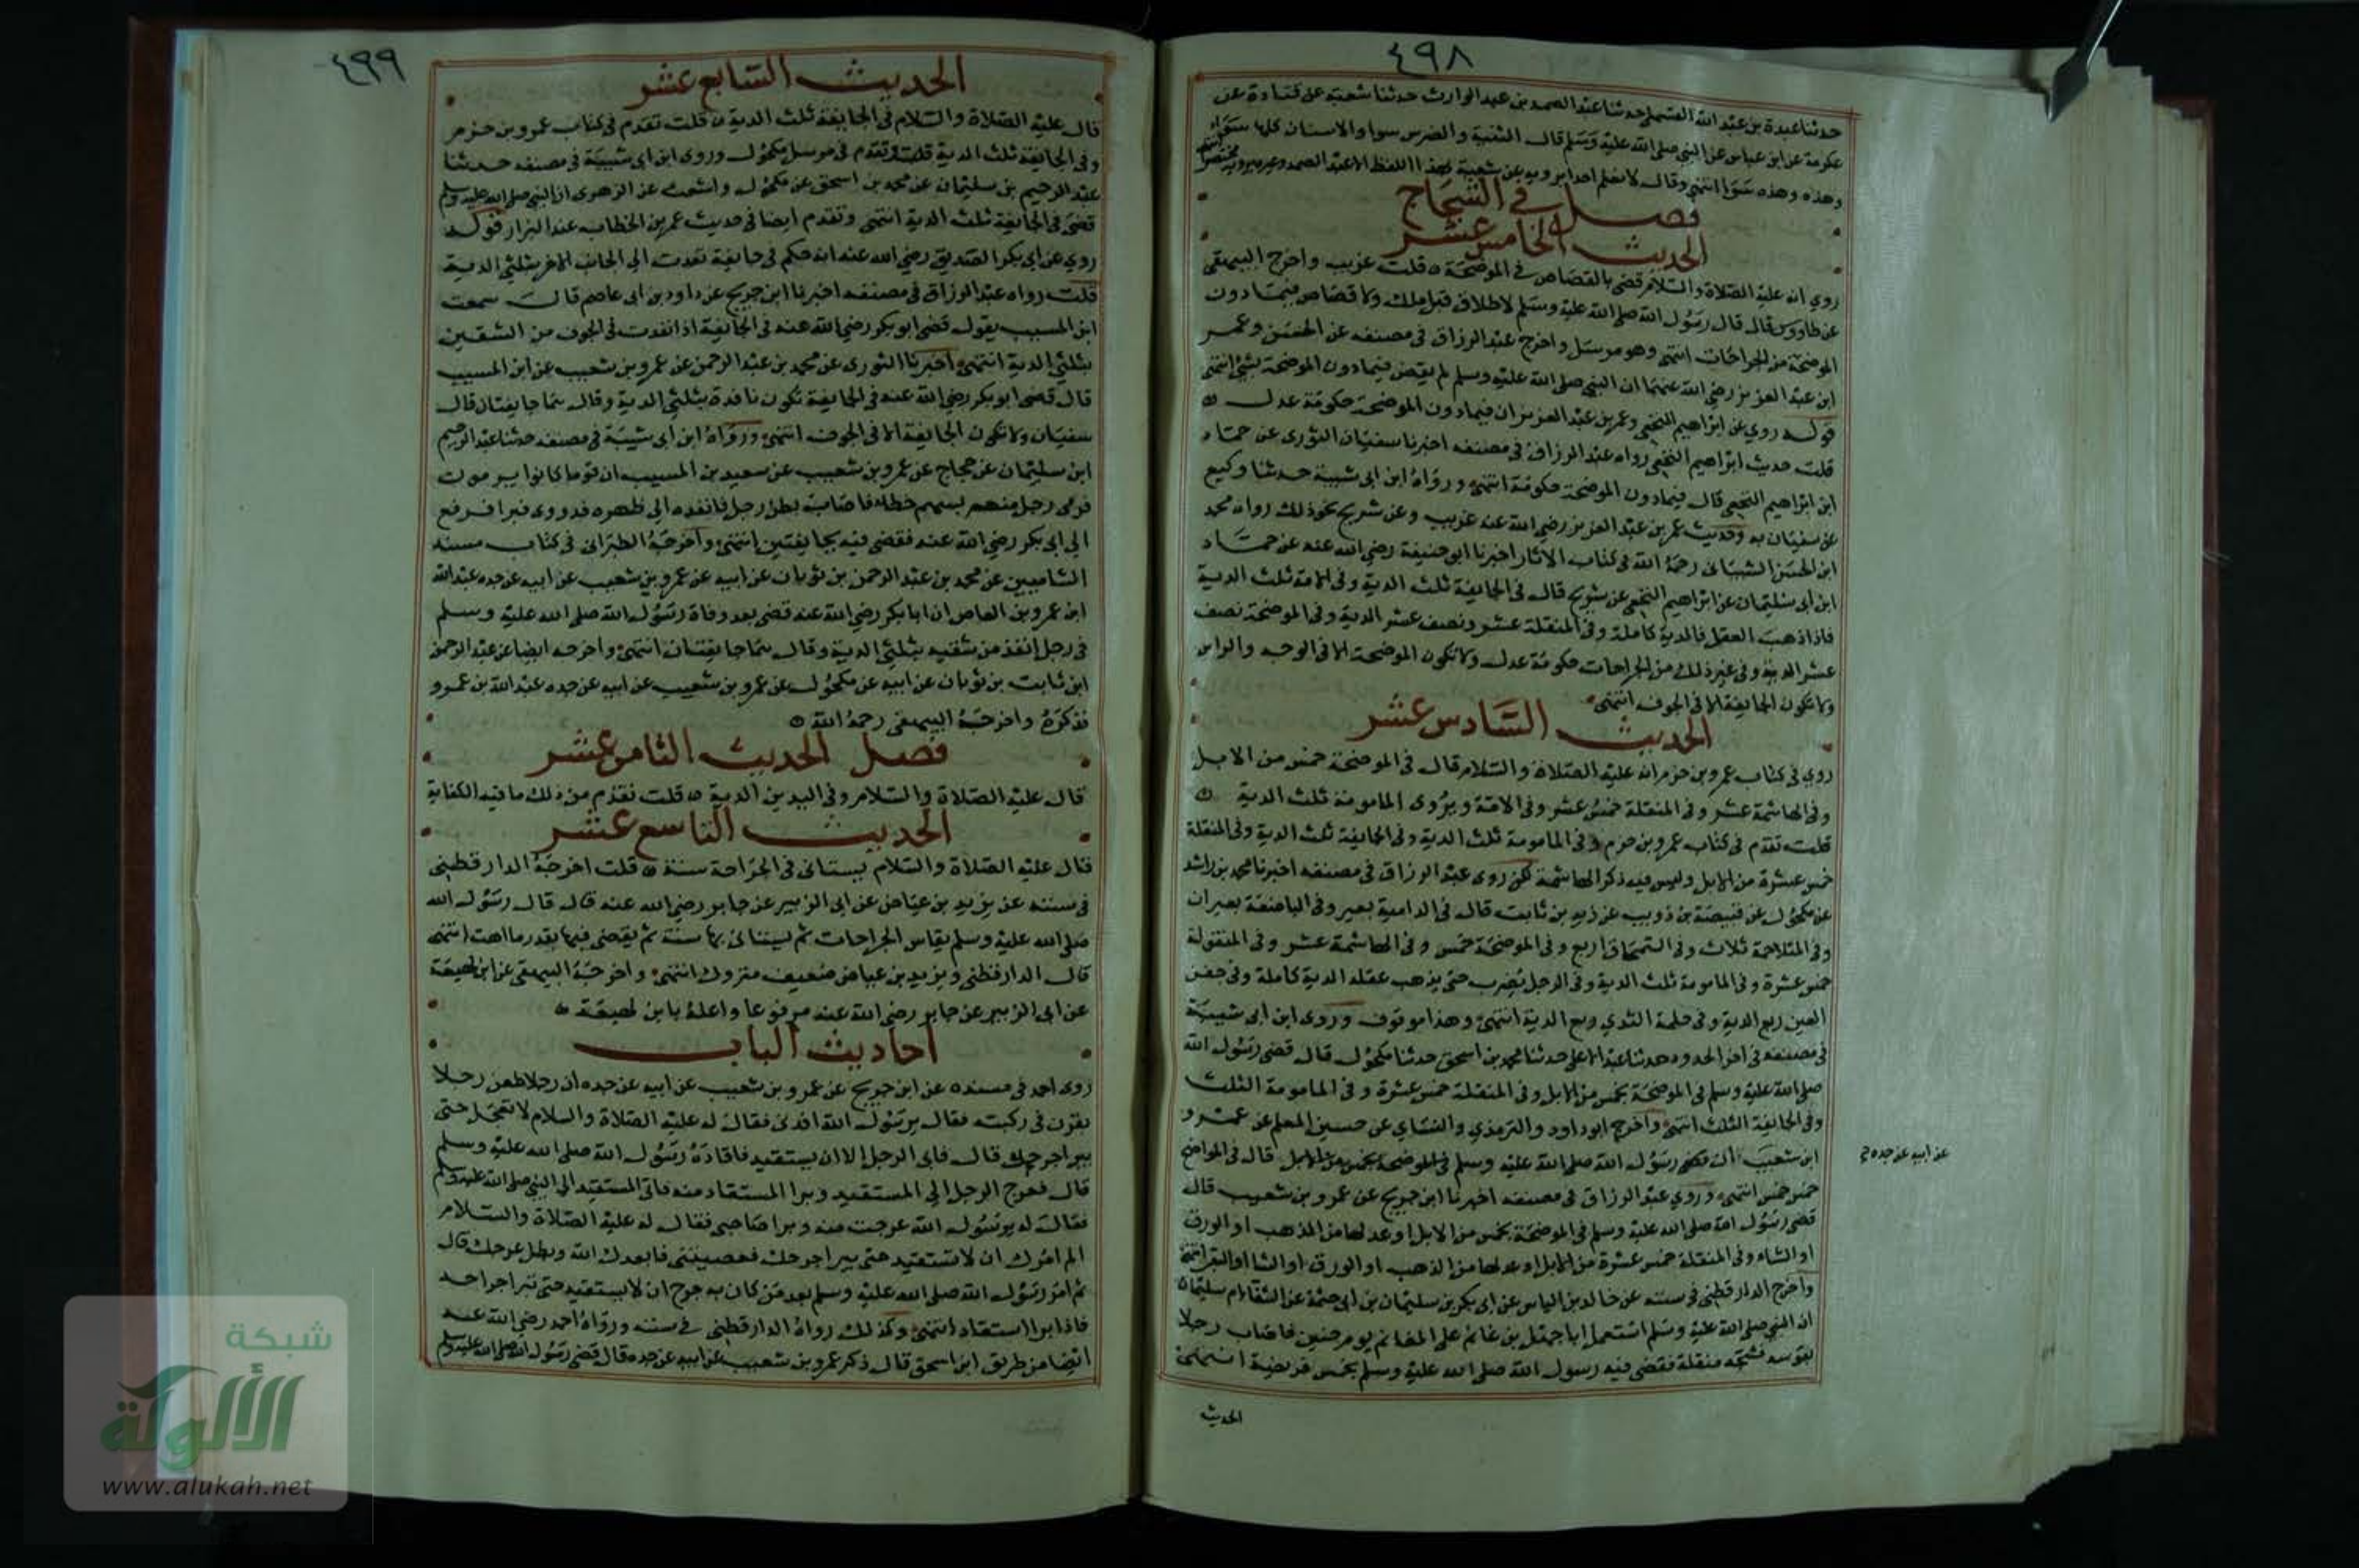 ٤٩٨
حدثنا عبدة بن عبد الله القسملي حدثنا عبد الصمد بن عبد الوارث حدثنا شعبة عن قتادة عن
عكرمة عن ابن عباس عن النبي صلى الله عليه وسلم قال الثنية والضرس سوا والاسنان كلها سواء
وهذه وهذه سوا انتهى وقال لا نعلم احدا يرويه عن شعبة بهذا اللفظ الا عبد الصمد وغيره يرويه مختصرا انتهى
فصل في الشجاج
الحديث الخامس عشر
روي انه عليه الصلاة والسلام قضى بالقصاص في الموضحة ه قلت غريب واخرج البيهقي
عن طاووس قال قال رسول الله صلى الله عليه وسلم لا طلاق قبل ملك ولا قصاص فيما دون
الموضحة من الجراحات انتهى وهو مرسل واخرج عبد الرزاق في مصنفه عن الحسن وعمر
ابن عبد العزيز رضي الله عنهما ان النبي صلى الله عليه وسلم لم يقض فيما دون الموضحة بشئ انتهى
قوله روي عن ابراهيم النخعي وعمر بن عبد العزيز ان فيما دون الموضحة حكومة عدل ه
قلت حديث ابراهيم النخعي رواه عبد الرزاق في مصنفه اخبرنا سفيان الثوري عن حماد
ابن ابراهيم النخعي قال فيما دون الموضحة حكومة انتهى ورواه ابن ابي شيبة حدثنا وكيع
عن سفيان به وحديث عمر بن عبد العزيز رضي الله عنه غريب وعن شريح نحو ذلك رواه محمد
ابن الحسن الشيباني رحمه الله في كتاب الاثار اخبرنا ابو حنيفة رضي الله عنه عن حماد
ابن ابي سليمان عن ابراهيم النخعي عن شريح قال في الجايفة ثلث الدية وفي الامة ثلث الدية
فاذا ذهب العقل فالدية كاملة وفي المنقلة عشر ونصف عشر الدية وفي الموضحة نصف
عشر الدية وفي غير ذلك من الجراحات حكومة عدل ولا تكون الموضحة الا في الوجه والراس
ولا تكون الجايفة الا في الجوف انتهى
الحديث السادس عشر
روي في كتاب عمرو بن حزم انه عليه الصلاة والسلام قال في الموضحة خمس من الابل
وفي الهاشمة عشر وفي المنقلة خمس عشر وفي الامة ويروى المامومة ثلث الدية ه
قلت تقدم في كتاب عمرو بن حزم وفي المامومة ثلث الدية وفي الجايفة ثلث الدية وفي المنقلة
خمس عشرة من الابل وليس فيه ذكر الهاشمة لكن روى عبد الرزاق في مصنفه اخبرنا محمد بن راشد
عن مكحول عن قبيصة بن ذويب عن زيد بن ثابت قال في الدامية بعير وفي الباضعة بعيران
وفي المتلاحمة ثلاث وفي السمحاق اربع وفي الموضحة خمس وفي الهاشمة عشر وفي المنقولة
خمس عشرة وفي المامومة ثلث الدية وفي الرجل يضرب حتى يذهب عقله الدية كاملة وفي جفن
العين ربع الدية وفي حلمة الثدي ربع الدية انتهى وهذا موقوف وروى ابن ابي شيبة
في مصنفه في اخر الحدود حدثنا عبد الاعلى حدثنا محمد بن اسحق حدثنا مكحول قال قضى رسول الله
صلى الله عليه وسلم في الموضحة بخمس من الابل وفي المنقلة خمس عشرة وفي المامومة الثلث
وفي الجايفة الثلث انتهى واخرج ابو داود والترمذي والنسائي عن حسين المعلم عن عمرو
ابن شعيب ان رسول الله صلى الله عليه وسلم قال في المواضح
عن ابيه عن جده
خمس خمس انتهى وروي عبد الرزاق في مصنفه اخبرنا ابن جريج عن عمرو بن شعيب قال
قضى رسول الله صلى الله عليه وسلم في الموضحة بخمس من الابل او عدلها من الذهب او الورق
او الشاء وفي المنقلة خمس عشرة من الابل او عدلها من الذهب او الورق او الشا او البقر انتهى
واخرج الدارقطني في سننه عن خالد بن الياس عن ابي بكر بن سليمان بن ابي حثمة عن الشفا ام سليمان
ان النبي صلى الله عليه وسلم استعمل ابا جهم بن غانم على المغانم يوم حنين فاصاب رجلا
بقوسه فشجه منقلة فقضى فيه رسول الله صلى الله عليه وسلم بخمس فريضة انتهى
الحديث
٤٩٩
الحديث السابع عشر
قال عليه الصلاة والسلام في الجايفة ثلث الدية ه قلت تقدم في كتاب عمرو بن حزم
وفي الجايفة ثلث الدية قلت وتقدم في مرسل مكحول وروى ابن ابي شيبة في مصنفه حدثنا
عبد الرحيم بن سليمان عن محمد بن اسحق عن مكحول واشعث عن الزهري ان النبي صلى الله عليه وسلم
قضى في الجايفة ثلث الدية انتهى وتقدم ايضا في حديث عمر بن الخطاب عند البزار قوله
روي عن ابي بكر الصديق رضي الله عنه انه حكم في جايفة نفذت الى الجانب الاخر بثلثي الدية
قلت رواه عبد الرزاق في مصنفه اخبرنا ابن جريج عن داود بن ابي عاصم قال سمعت
ابن المسيب يقول قضى ابو بكر رضي الله عنه في الجايفة اذا نفدت في الجوف من الشقين
بثلثي الدية انتهى اخبرنا الثوري عن محمد بن عبد الرحمن عن عمرو بن شعيب عن ابن المسيب
قال قضى ابو بكر رضي الله عنه في الجايفة تكون نافدة بثلثي الدية وقال هما جايفتان قال
سفيان ولا تكون الجايفة الا في الجوف انتهى ورواه ابن ابي شيبة في مصنفه حدثنا عبد الرحيم
ابن سليمان عن حجاج عن عمرو بن شعيب عن سعيد بن المسيب ان قوما كانوا يرمون
فرمى رجل منهم بسهم خطا فاصاب بطن رجل فانفده الى ظهره فدووى فبرا فرفع
الى ابي بكر رضي الله عنه فقضى فيه بجايفتين انتهى واخرجه الطبراني في كتاب مسند
الشاميين عن محمد بن عبد الرحمن بن ثوبان عن ابيه عن عمرو بن شعيب عن ابيه عن جده عبد الله
ابن عمرو بن العاص ان ابا بكر رضي الله عنه قضى بعد وفاة رسول الله صلى الله عليه وسلم
في رجل انفذ من شقيه بثلثي الدية وقال هما جايفتان انتهى واخرجه ايضا عن عبد الرحمن
ابن ثابت بن ثوبان عن ابيه عن مكحول عن عمرو بن شعيب عن ابيه عن جده عبد الله بن عمرو
فذكره واخرجه البيهقي رحمه الله ه
فصل الحديث الثامن عشر
قال عليه الصلاة والسلام وفي اليدين الدية ه قلت تقدم من ذلك ما فيه الكفاية
الحديث التاسع عشر
قال عليه الصلاة والسلام يستانى في الجراحة سنة ه قلت اخرجه الدارقطني
في سننه عن يزيد بن عياض عن ابي الزبير عن جابر رضي الله عنه قال قال رسول الله
صلى الله عليه وسلم يقاس الجراحات ثم يستانى بها سنة ثم يقضى فيها بقدر ما انتهت انتهى
قال الدارقطني ويزيد بن عياض ضعيف متروك انتهى واخرجه البيهقي عن ابن لهيعة
عن ابي الزبير عن جابر رضي الله عنه مرفوعا واعله بابن لهيعة ه
احاديث الباب
روى احمد في مسنده عن ابن جريج عن عمرو بن شعيب عن ابيه عن جده ان رجلا طعن رجلا
بقرن في ركبته فقال يرسول الله اقدني فقال له عليه الصلاة والسلام لا تعجل حتى
يبرا جرحك قال فابى الرجل الا ان يستقيد فاقاده رسول الله صلى الله عليه وسلم
قال فعرج الرجل المستقيد وبرا المستقاد منه فاتى المستقيد الى النبي صلى الله عليه وسلم
فقال له يرسول الله عرجت منه وبرا صاحبي فقال له عليه الصلاة والسلام
الم امرك ان لا تستقيد حتى يبرا جرحك فعصيتني فابعدك الله وبطل عرجك قال
ثم امر رسول الله صلى الله عليه وسلم بعد من كان به جرح ان لا يستقيد حتى تبرا جراحه
فاذا برا استقاد انتهى وكذلك رواه الدارقطني في سننه ورواه احمد رضي الله عنه
ايضا من طريق ابن اسحق قال ذكر عمرو بن شعيب عن ابيه عن جده قال قضى رسول الله صلى الله عليه وسلم
شبكة
الألوكة
www.alukah.net